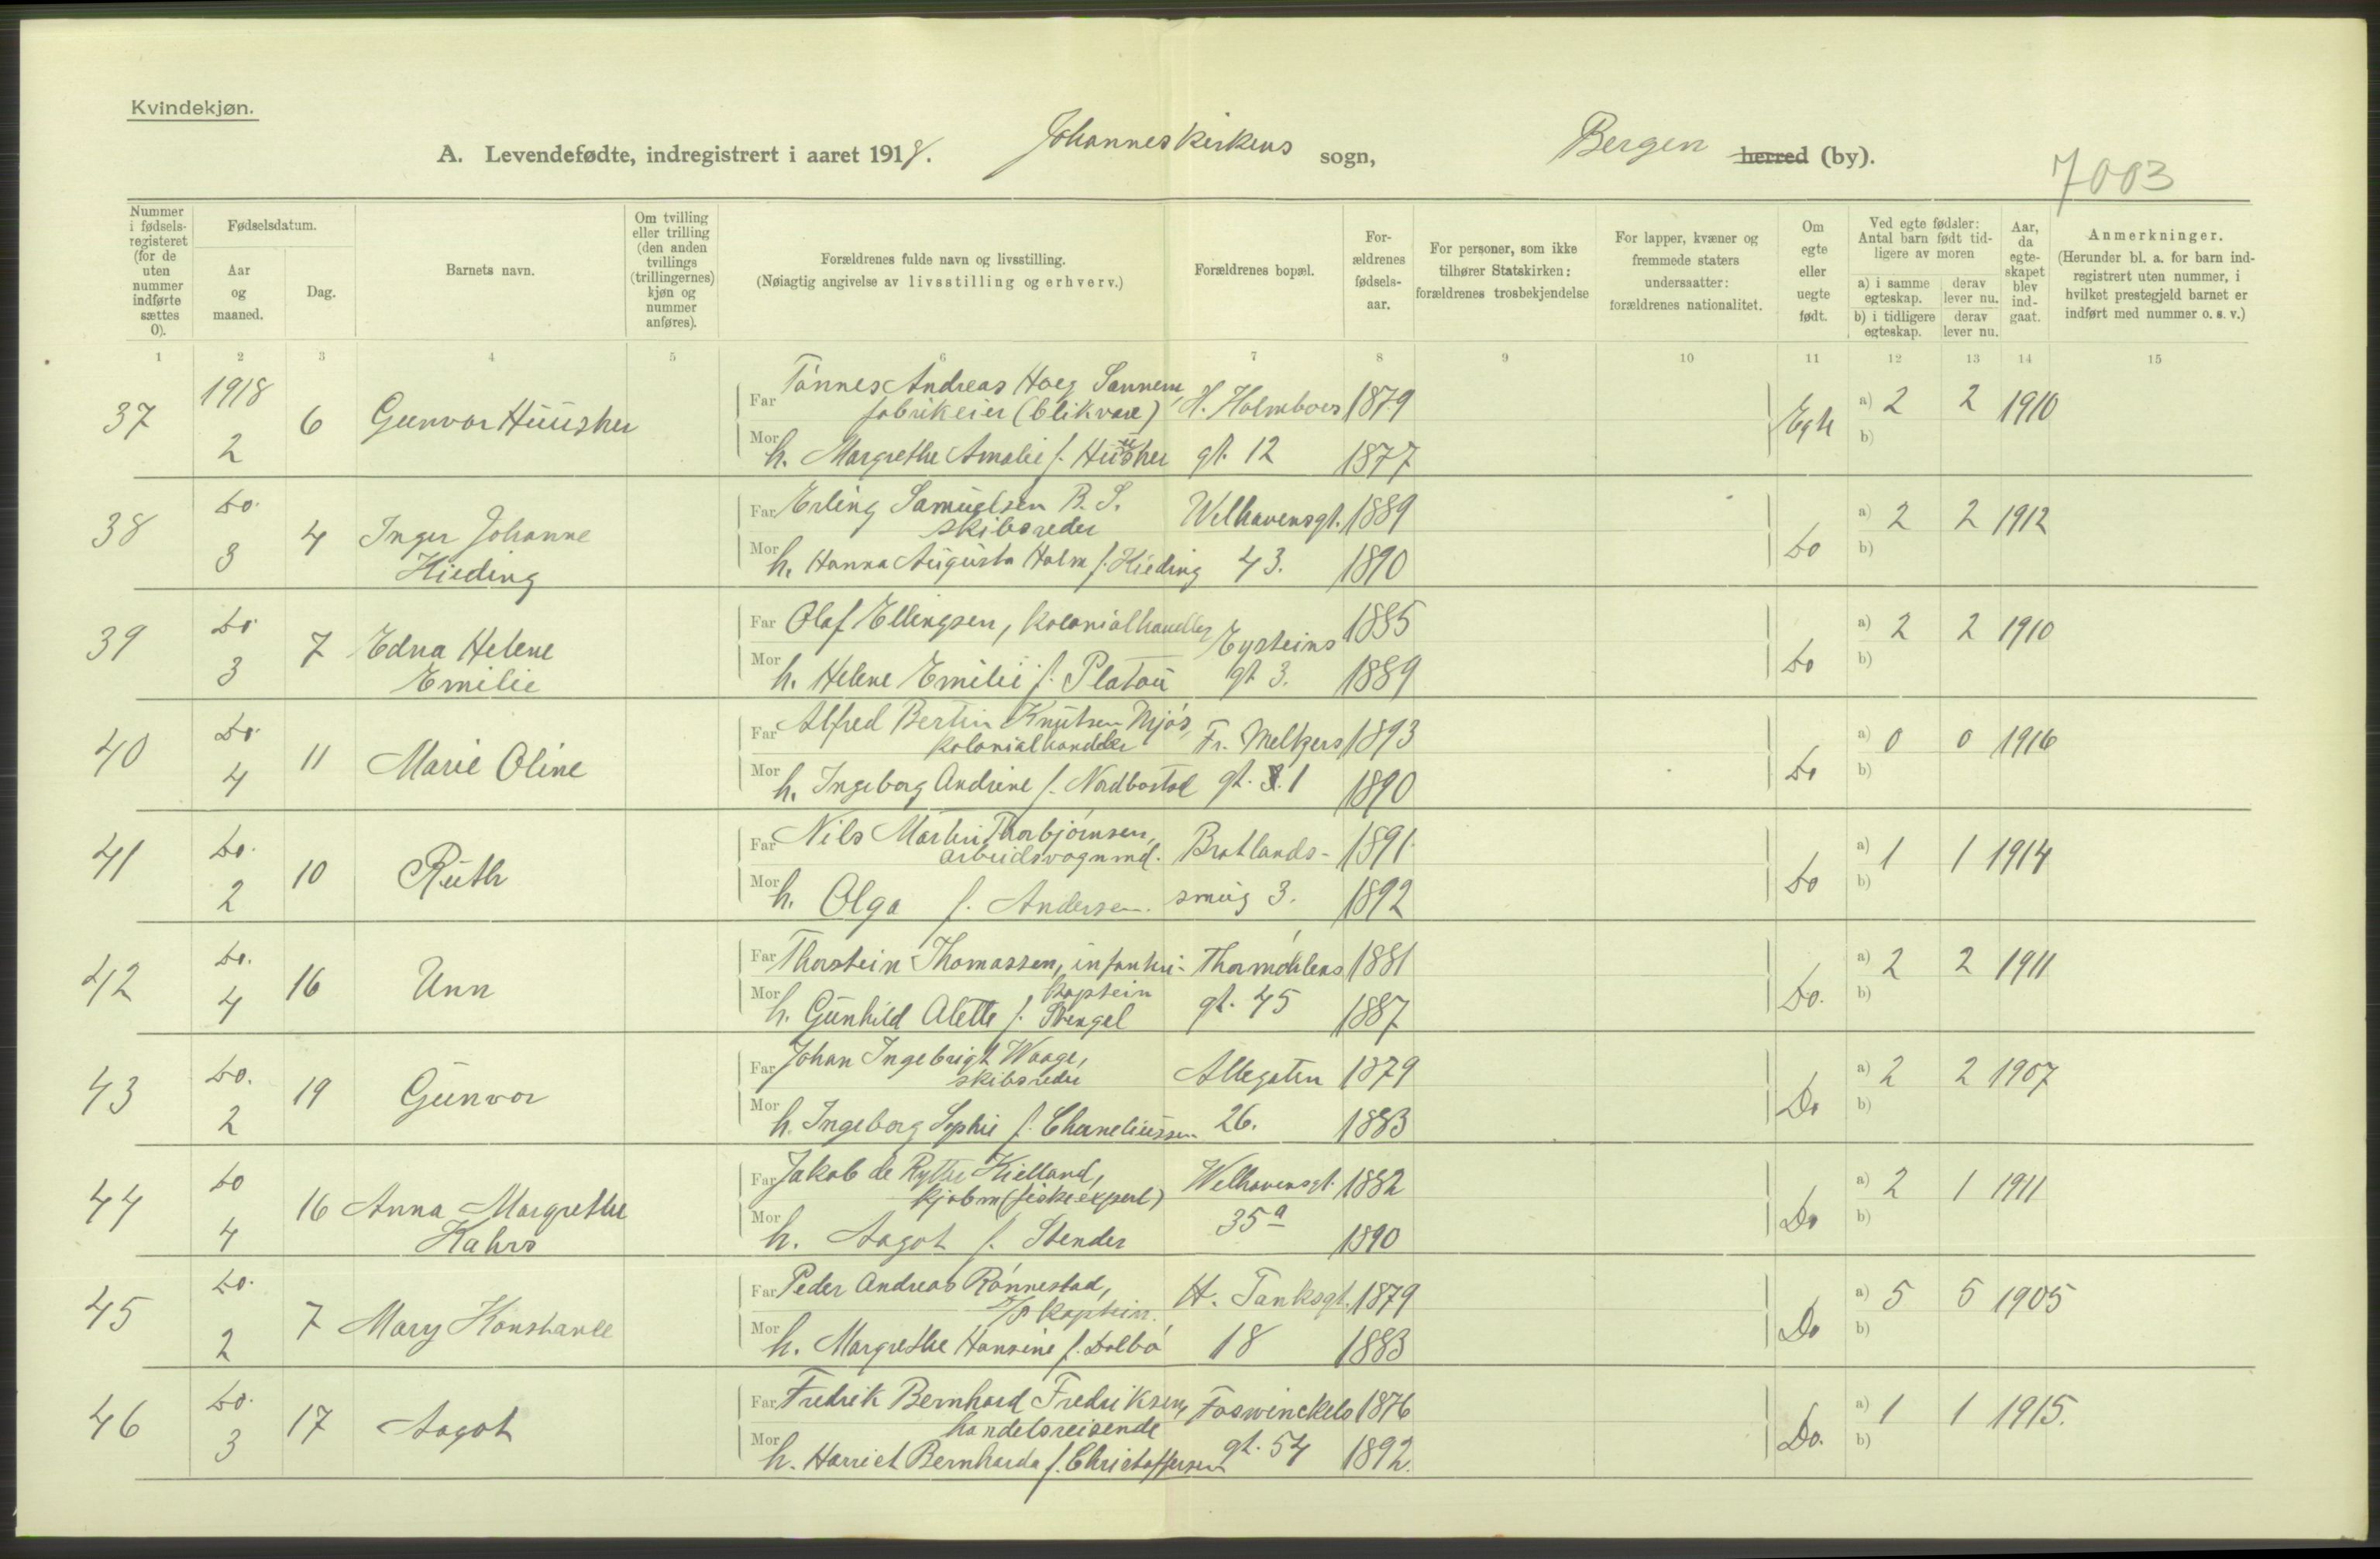 Kvindekjøn.
A. Levendefødte, indregistrert i aaret 1918. Johanneskirkens sogn, Bergen herred (by).
7003
Nummer i fødsels-registeret (for de uten nummer indførte sættes 0).
Fødselsdatum.
Aar og maaned.
Dag.
Barnets navn.
Om tvilling eller trilling (den anden tvillings (trillingernes) kjøn og nummer anføres).
Forældrenes fulde navn og livsstilling.
(Nøiagtig angivelse av livsstilling og erhverv.)
Forældrenes bopæl.
For-ældrenes fødsels-aar.
For personer, som ikke tilhører Statskirken: forældrenes trosbekjendelse
For lapper, kvæner og fremmede staters undersaatter: forældrenes nationalitet.
Om egte eller uegte født.
Ved egte fødsler: Antal barn født tid-ligere av moren
a) i samme egteskap. derav lever nu.
b) i tidligere egteskap. derav lever nu.
Aar, da egte-skapet blev ind-gaat.
Anmerkninger.
(Herunder bl. a. for barn ind-registrert uten nummer, i hvilket prestegjeld barnet er indført med nummer o. s. v.)
1 2 3 4 5 6 7 8 9 10 11 12 13 14 15
37 1918 2 6 Gunvor
Far Tönnes Andreas Hoeg
fabrikeier (blikvare) H. Holmboes 1879 Egte a) 2 2 1910
Mor h. Margrethe Amalie f. gt. 12 1877 b)
38 Do. 3 4 Inger Johanne
Kieding
Far Erling Samuelsen B. S. Welhavensgt. 1889 a) 2 2 1912
skibsreder
Mor h. Hanna Augusta Holm f. Kieding 43. 1890 Do b)
39 Do 3 7 Edna Helene
Emilie
Far Olaf Ellingsen, kolonialhandler Eysteins 1885 a) 2 2 1910
Mor h. Helene Emilie f. Platou gt 3. 1889 Do b)
40 Do 4 11 Marie Oline
Far Alfred Bertin Knutsen Mjös,
kolonialhandler Fr. Meltzers 1893 a) 0 0 1916
Mor h. Ingeborg Andrine f. gt. 1 1890 Do b)
41 Do. 2 10 Ruth
Far Nils Martin Thorbjörnsen,
arbeidsvognmd. Bratlands- 1891 a) 1 1 1914
Mor h. Olga f. Andersen. smug 3. 1892 Do b)
42 Do. 4 16 Unn
Far Thorstein Thomassen, infanteri- Thormöhlens 1881 a) 2 2 1911
kaptein
Mor h. Gunhild Alette f. Stengel gt. 45 1887 Do. b)
43 Do. 2 19 Gunvor
Far Johan Ingebrigt Waage,
skibsreder Allegaten 1879 a) 2 2 1907
Mor h. Ingeborg Sophie f. 26. 1883 Do b)
44 Do 4 16 Anna Margrethe
Kahrs
Far Jakob de Rytter Kielland,
kjøbm (fiskeexport) Welhavensgt. 1882 a) 2 1 1911
Mor h. Aagot f. Stender 35a 1890 Do b)
45 Do. 2 7 Mary Konstance
Far Peder Andreas Rönnestad,
D/S kaptein. H. Tanksgt. 1879 a) 5 5 1905
Mor h. Margrethe Hansine f. Dolbö 18 1883 Do b)
46 Do. 3 17 Aagot
Far Fredrik Bernhard Fredriksen, Foswinckels 1876 a) 1 1 1915.
handelsreisende
Mor h. Harriet Bernharda f. Christoffersen gt. 54 1892. Do. b)